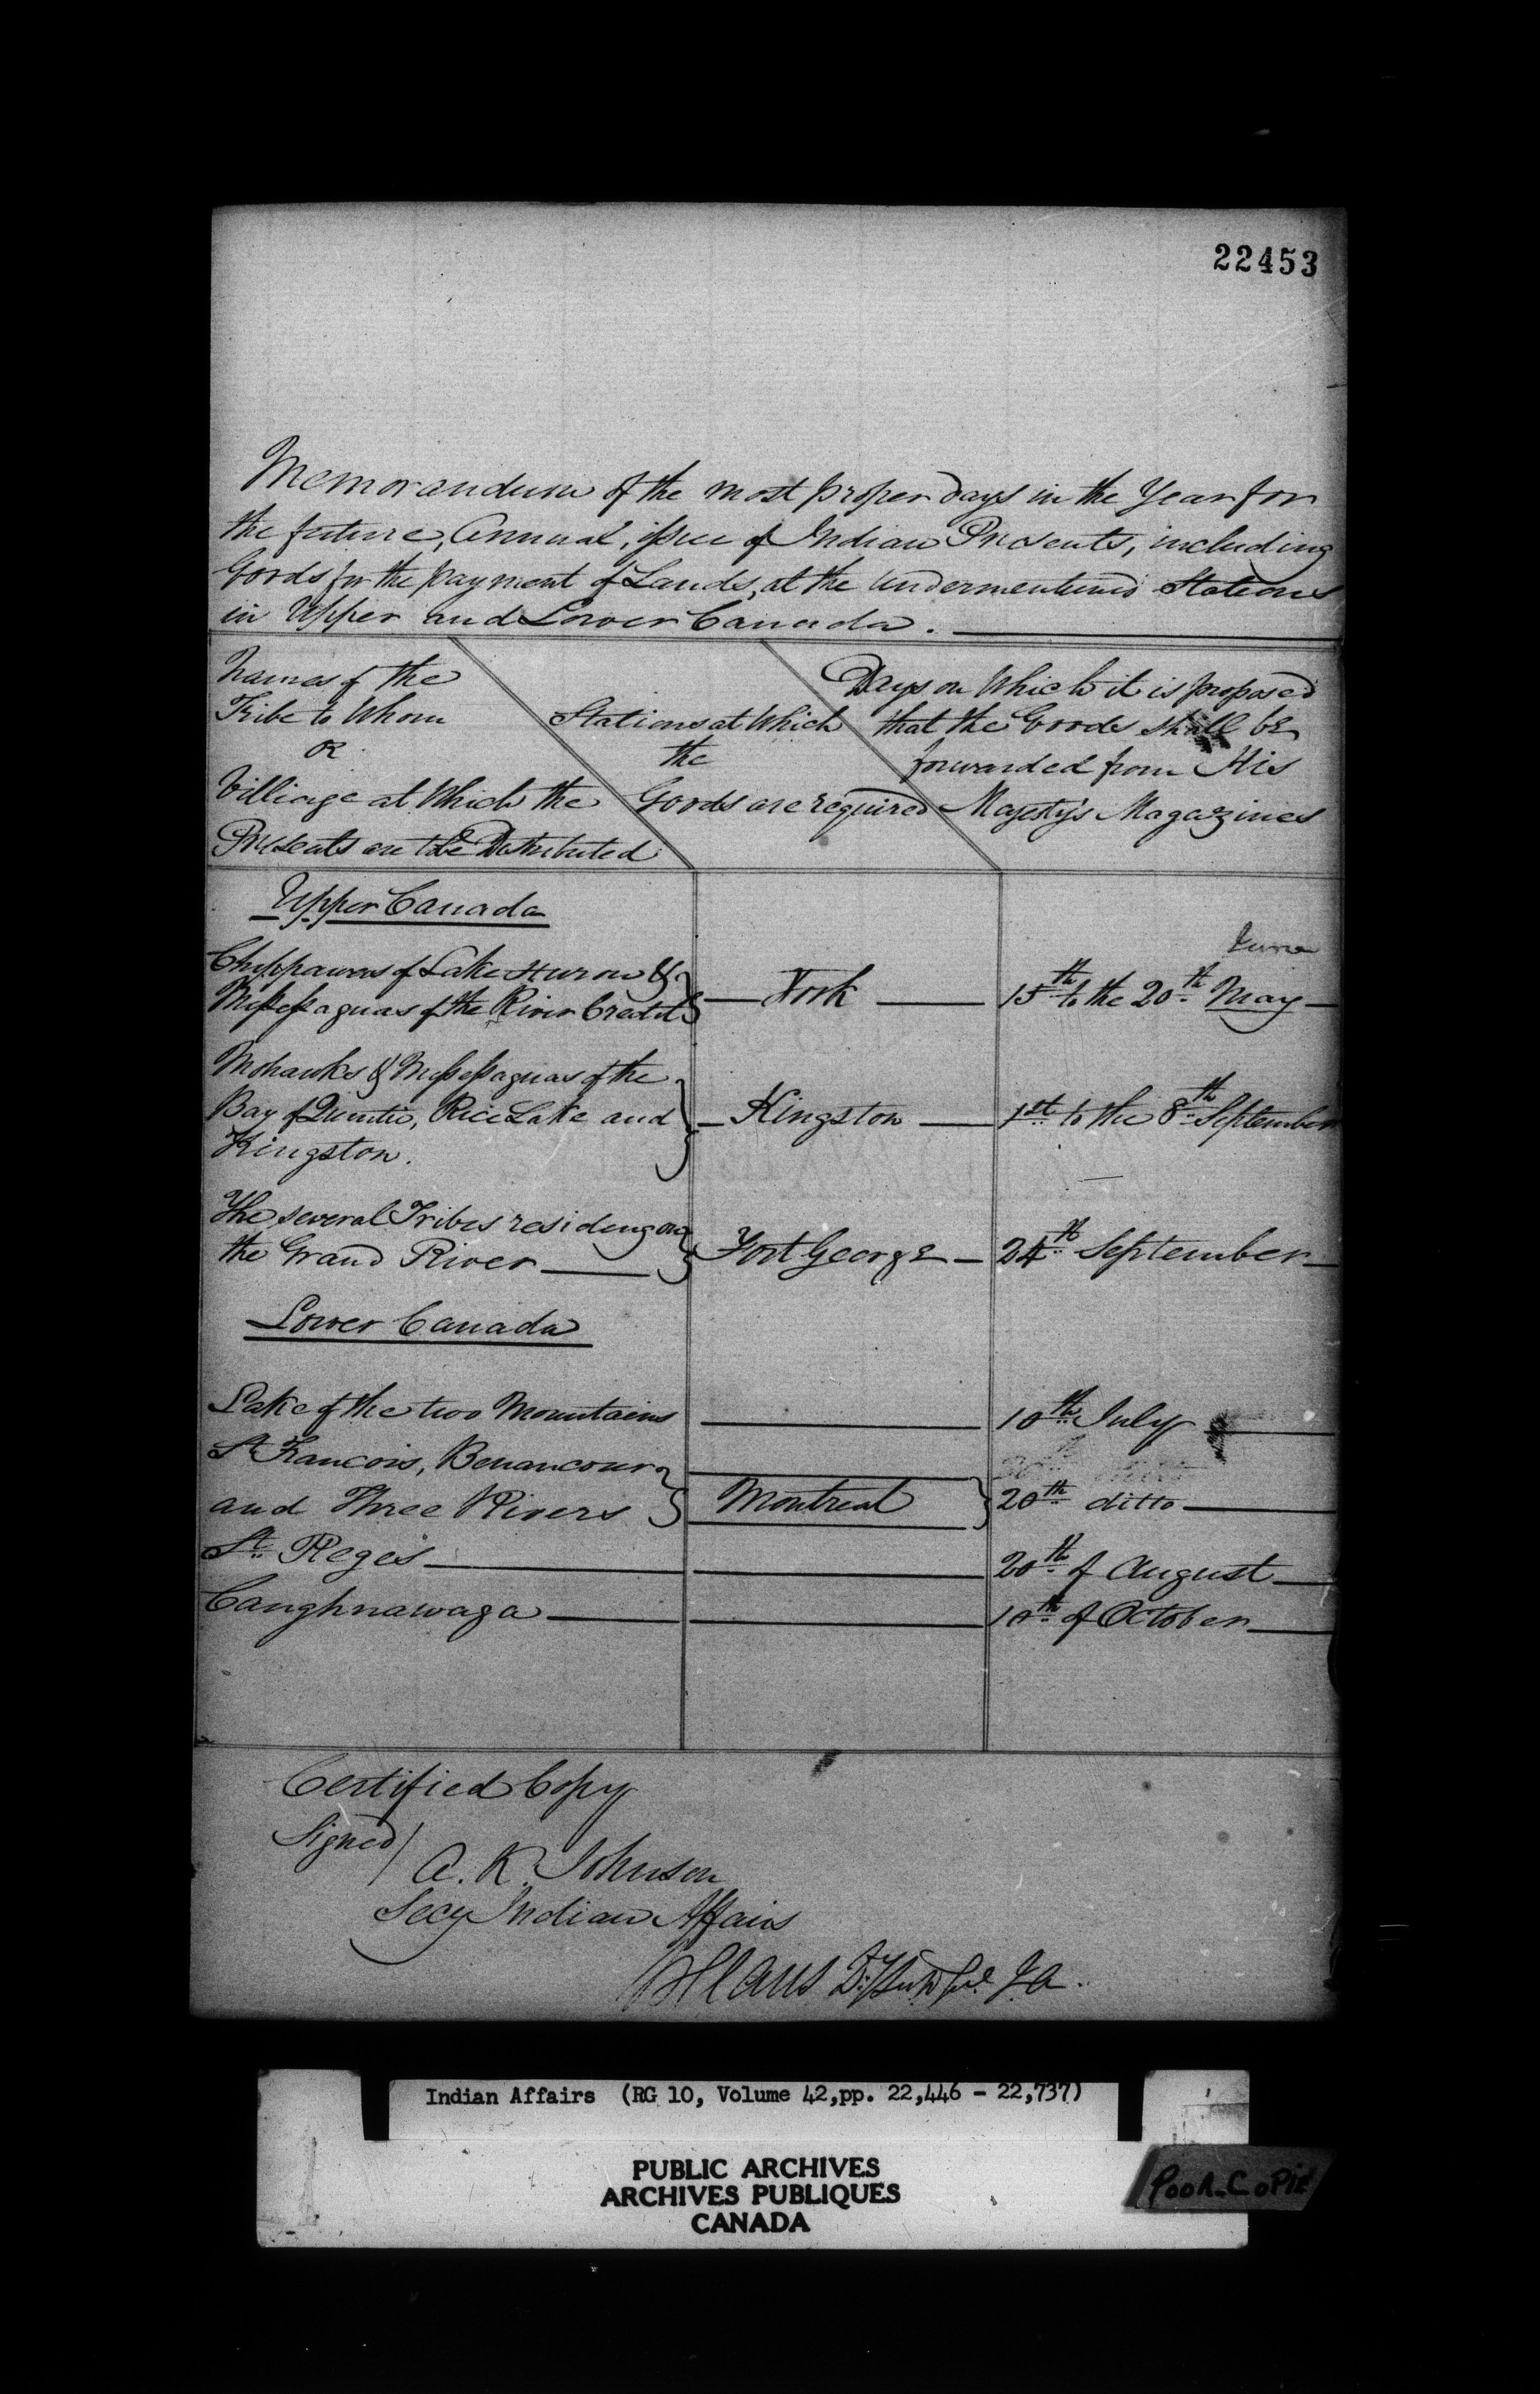 22453
Memorandum of the most proper days in the Year for
the future, Annual, issue of Indian Presents, including
Goods for the payment of Lands, at the undermentioned Stations
in Upper and Lower Canada.
Names of the
Tribe to Whom
or
Villiage at Which the
Presents are to be Distributed
Stations at Which
the
Goods are required
Days on Which it is proposed
that the Goods shall be
forwarded from His
Majesty's Magazines
Upper Canada
Chippawas of Lake Huron &
Missessaguas of the River Credit
York
15th to the 20th May
June
Mohawks & Missessaguas of the
Bay of Quinte, Rice Lake and
Kingston.
Kingston
1st to the 8th September
The several Tribes residing on
the Grand River
Fort George
24th September
Lower Canada
Lake of the two Mountains
10th July
St Francois, Becancour
and Three Rivers
Montreal
20th ditto
St Regis
20th of August
Caughnawaga
10th of October
Certified Copy
Signed/
A. K. Johnson
Secy Indian Affairs
Claus D. Supt Genl I.A.
Indian Affairs (RG 10, Volume 42, pp. 22,446 - 22,737)
PUBLIC ARCHIVES
ARCHIVES PUBLIQUES
CANADA
POOR COPIE